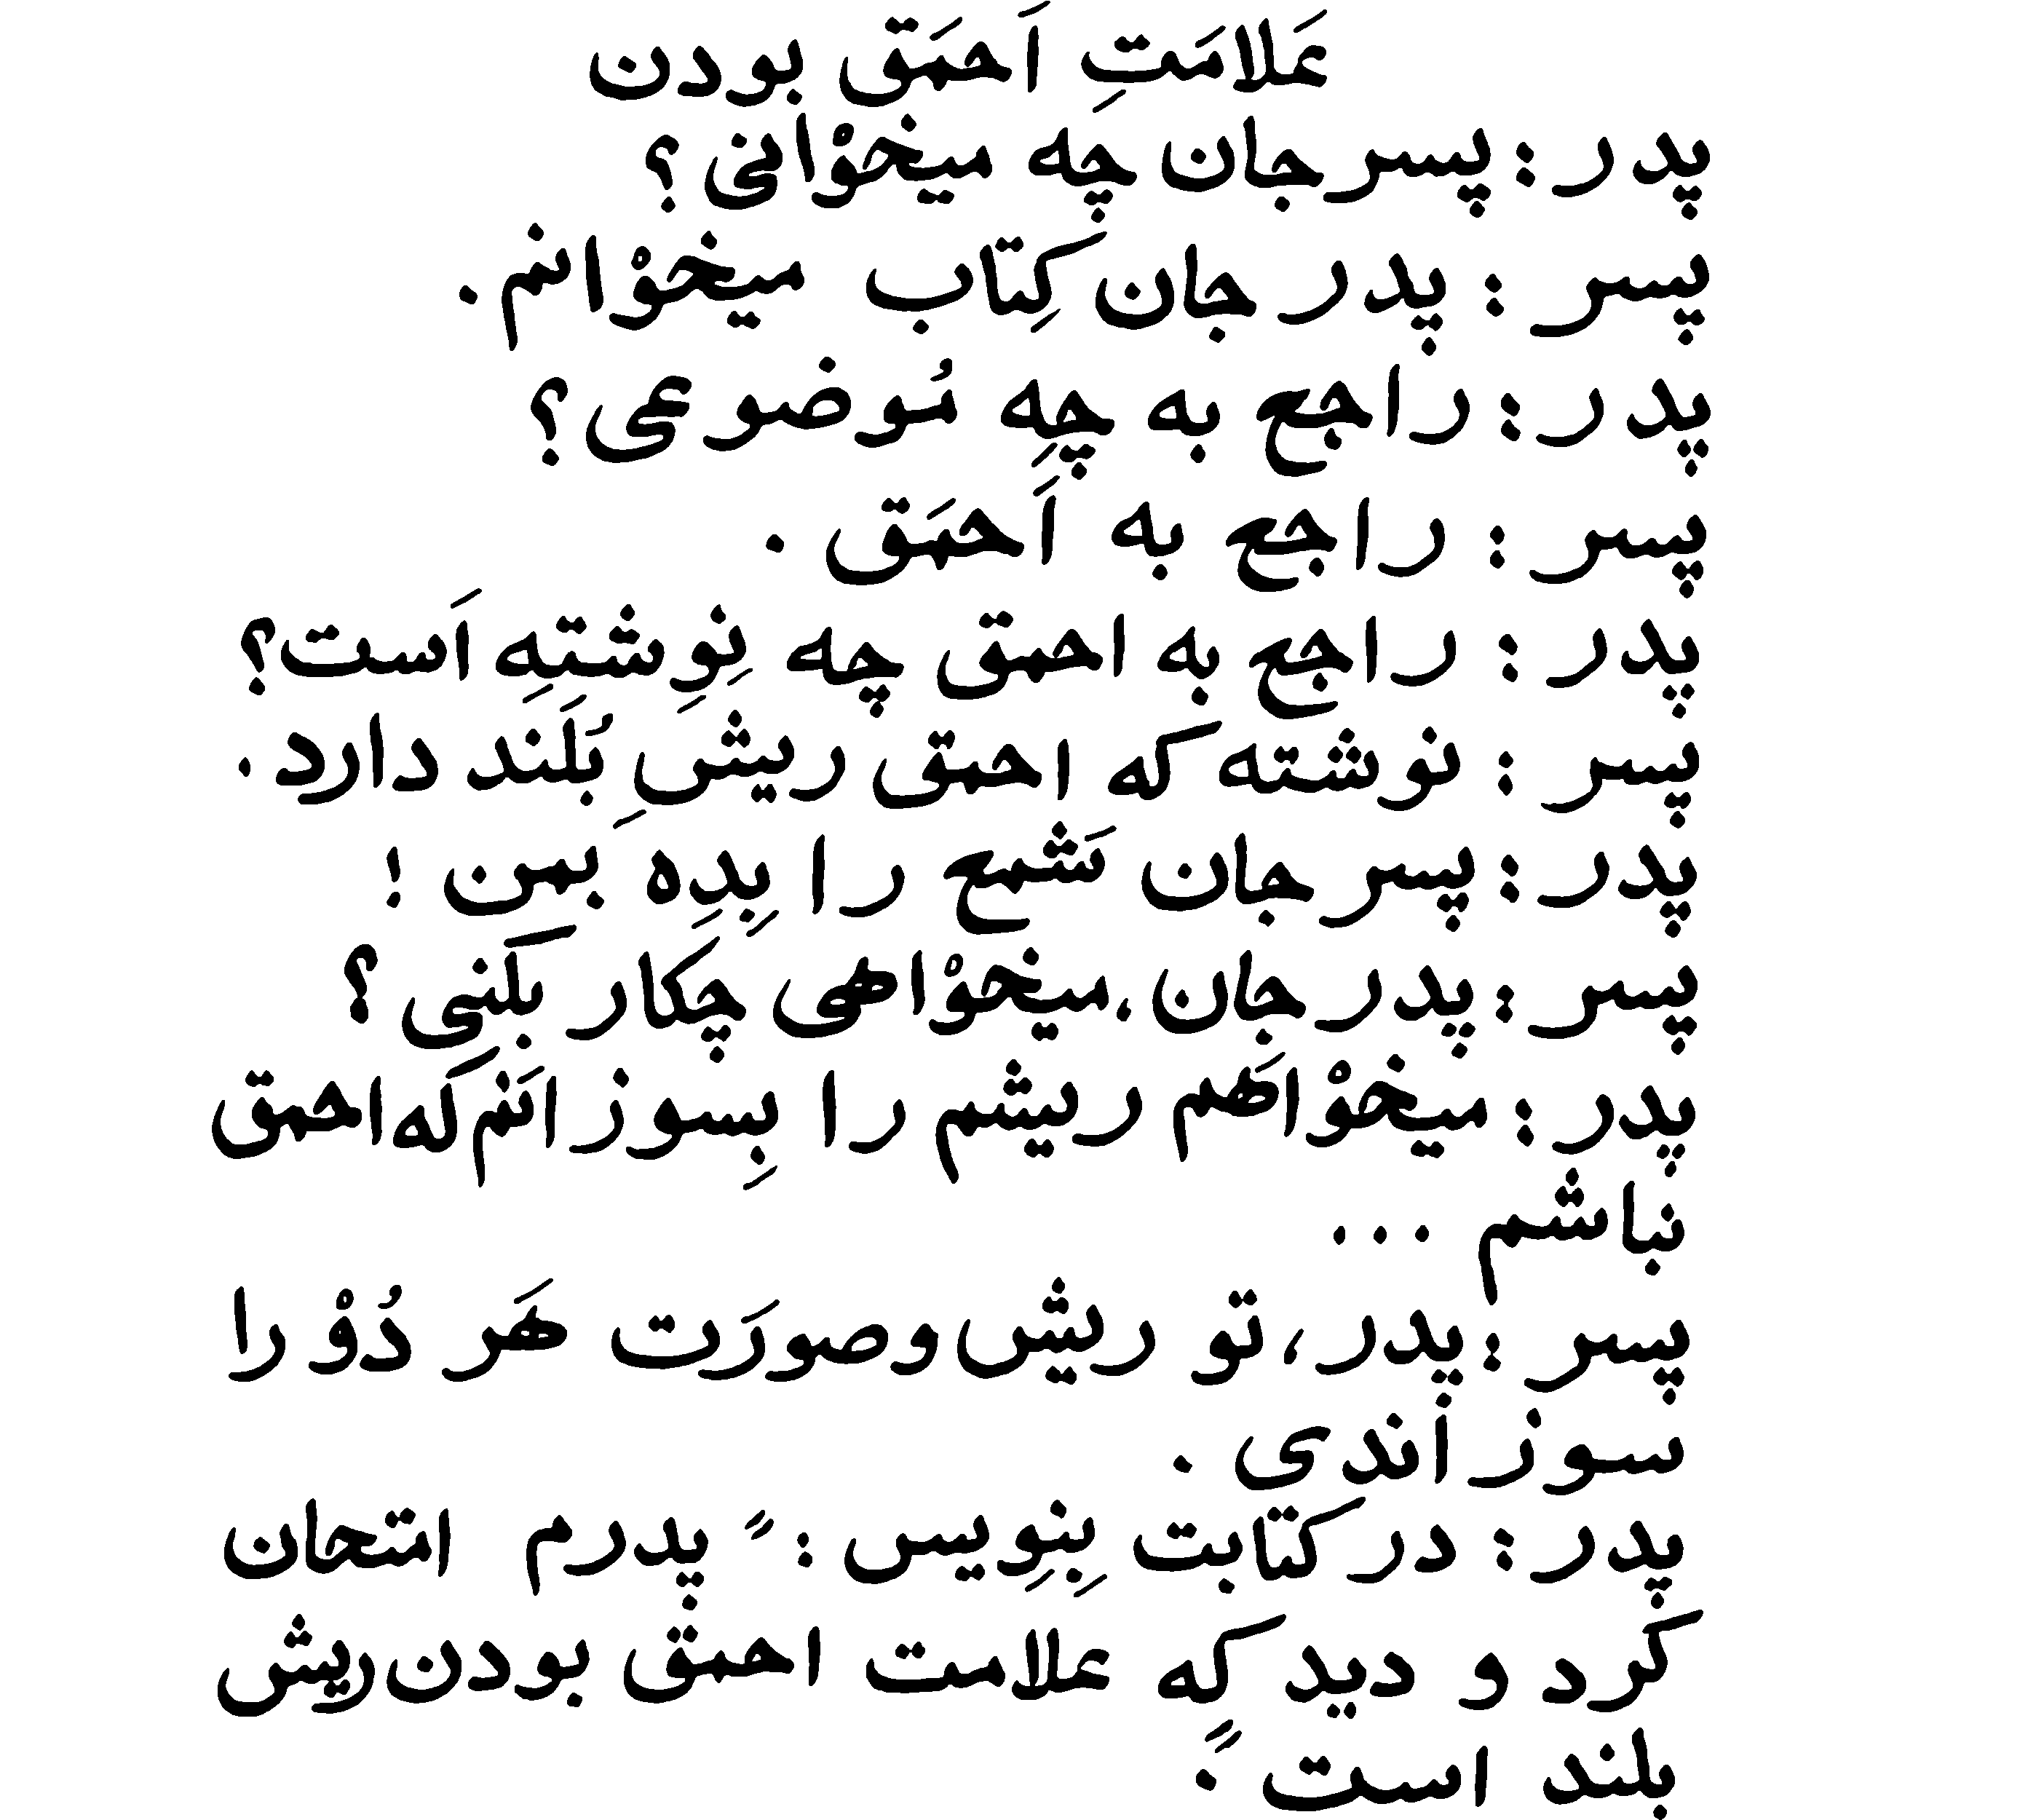 عَلامَتِ اَحمَق بودن
پدر : پسر جان چه میخوْانی؟
پسر : پدر جان کِتاب میخوْانم.
پدر : راجع به چِه مُوضوعی؟
پسر : راجع به اَحمَق .
پدر : راجع به احمق چه نِوِشتهِ اَست؟
پسر : نوشته که احمق ریشِ بُلَند دارد .
پدر : پسر جان شَمع را بِدِه بمن !
پسر : پدر جان، میخوْاهی چکار بکنی ؟
پدر : میخوْاهَم ریشم را بِسوزانَم که احمق
نباشم ...
پسر : پدر، تو ریش و صورَت هَر دُوْ را
سوزاندی .
پدر : در کتابت بِنِویس : " پدرم امتحان
کرد و دید که علامت احمق بودن ریش
بلند است ."